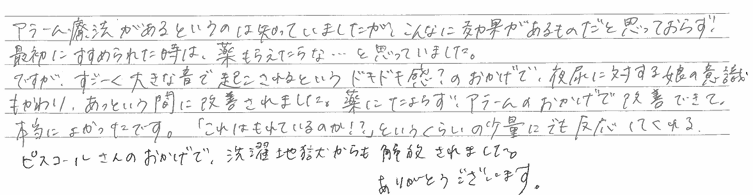 アラーム療法があるというのは知っていましたが、こんなに効果があるものだと思っておらず、
最初にすすめられた時は、薬もらえたらな…と思っていました。
ですが、すごーく大きな音で起こされるというドキドキ感?のおかげで、夜尿に対する娘の意識
もかわり、あっという間に改善されました。薬にたよらず、アラームのおかげで改善できて、
本当によかったです。「これはもれているのか!?」というくらいの少量にでも反応してくれる
ピスコールさんのおかげで、洗濯地獄からも解放されました。
ありがとうございます。